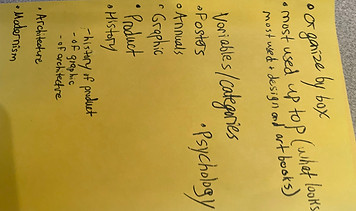 • Organize by box
• most used up top (what looks
most used & design and art books)
Variables/categories
• Posters
• Psychology
• Annuals
• Graphic
• Product
• History
- history of product
- of graphic
- of architecture
• Architecture
• Modernism